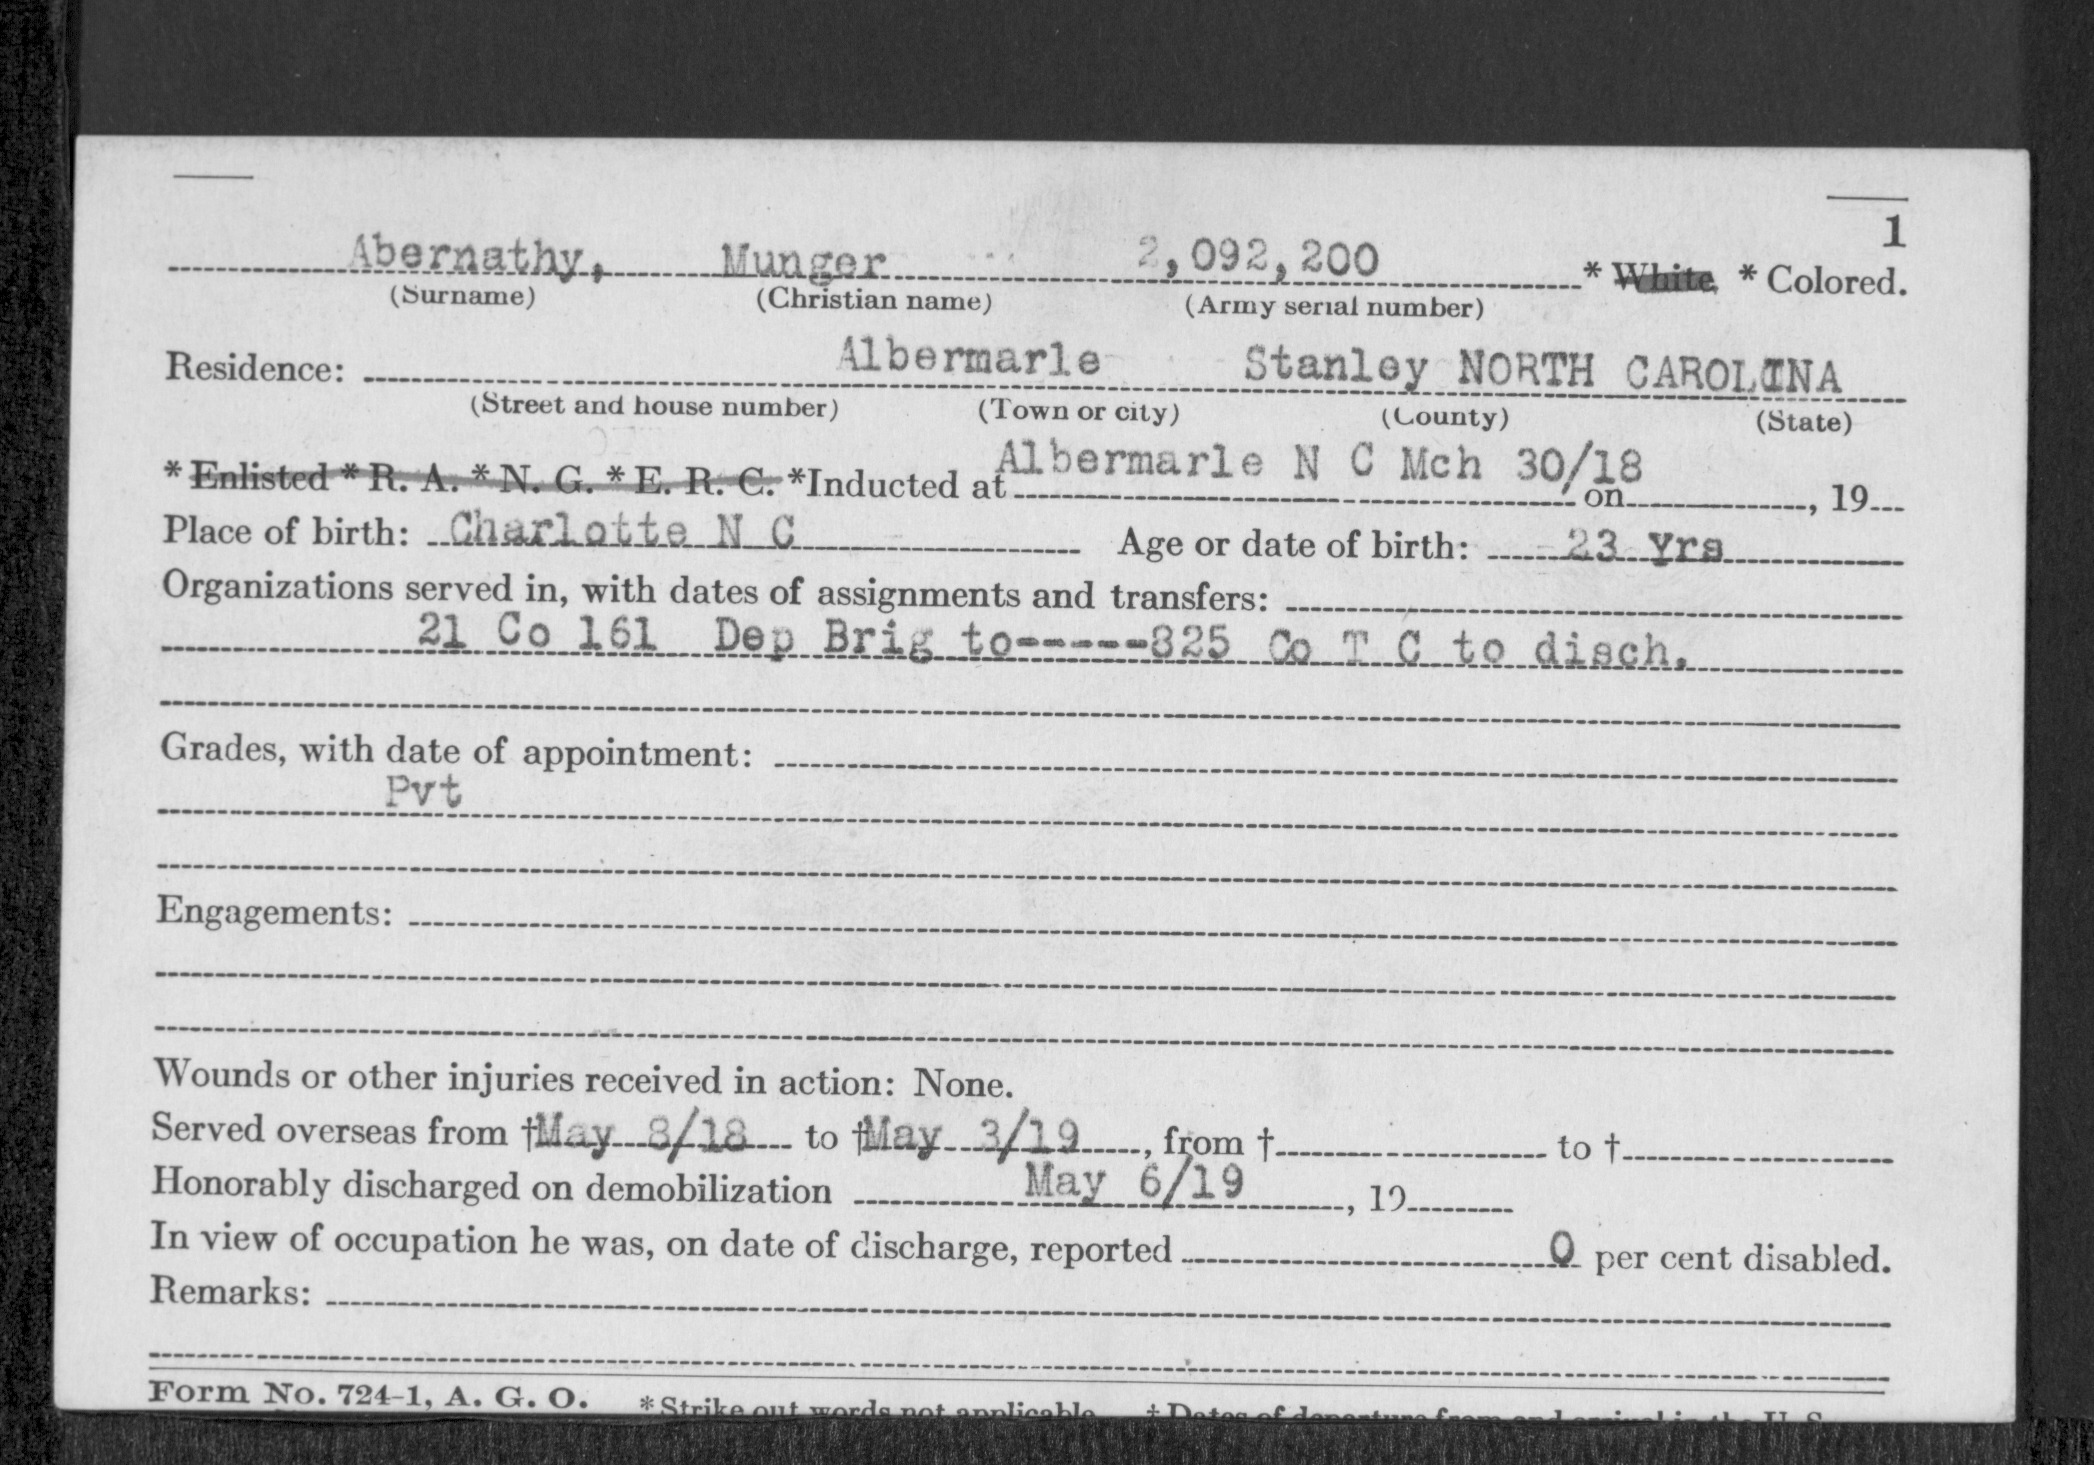 1
Abernathy, Munger 2,092,200 * White * Colored.
(Surname) (Christian name) (Army serial number)
Residence: Albermarle Stanley NORTH CAROLINA
(Street and house number) (Town or city) (County) (State)
* Enlisted * R. A. * N. G. * E. R. C. *Inducted at Albermarle N C Mch 30/18 on , 19
Place of birth: Charlotte N C Age or date of birth: 23 Yrs
Organizations served in, with dates of assignments and transfers:
21 Co 161 Dep Brig to-----825 Co T C to disch.
Grades, with date of appointment:
Pvt
Engagements:
Wounds or other injuries received in action: None.
Served overseas from † May 8/18 to † May 3/19, from † to †
Honorably discharged on demobilization May 6/19, 19
In view of occupation he was, on date of discharge, reported 0 per cent disabled.
Remarks:
Form No. 724-1, A. G. O. * Strike out words not applicable † Dates of departure from and arrival in the U. S.